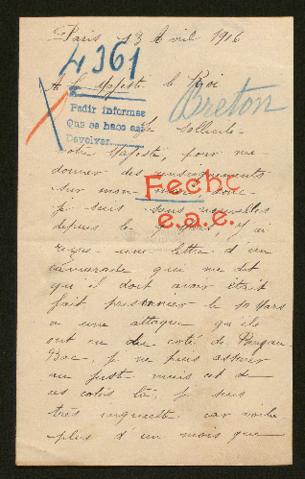 Paris 13 Avril 1916
4361
A Sa Majesté le Roi
Breton
Pedir informes
Que se hace así
Devolver
Je sollicite
votre Majesté, pour me
donner des renseignements
sur mon mari, dont
Fecho
je suis sans nouvelles
e.a.e.
depuis le
reçus une lettre d'un
camarade qui me dit
qu'il doit avoir était
fait prisonnier le 10 Mars
a une attaque qu'ils
ont eu du coté de
Bac, je ne puis assurer
au juste mais est de
ces cotés là, je suis
très inquiète car voila
plus d'un mois que